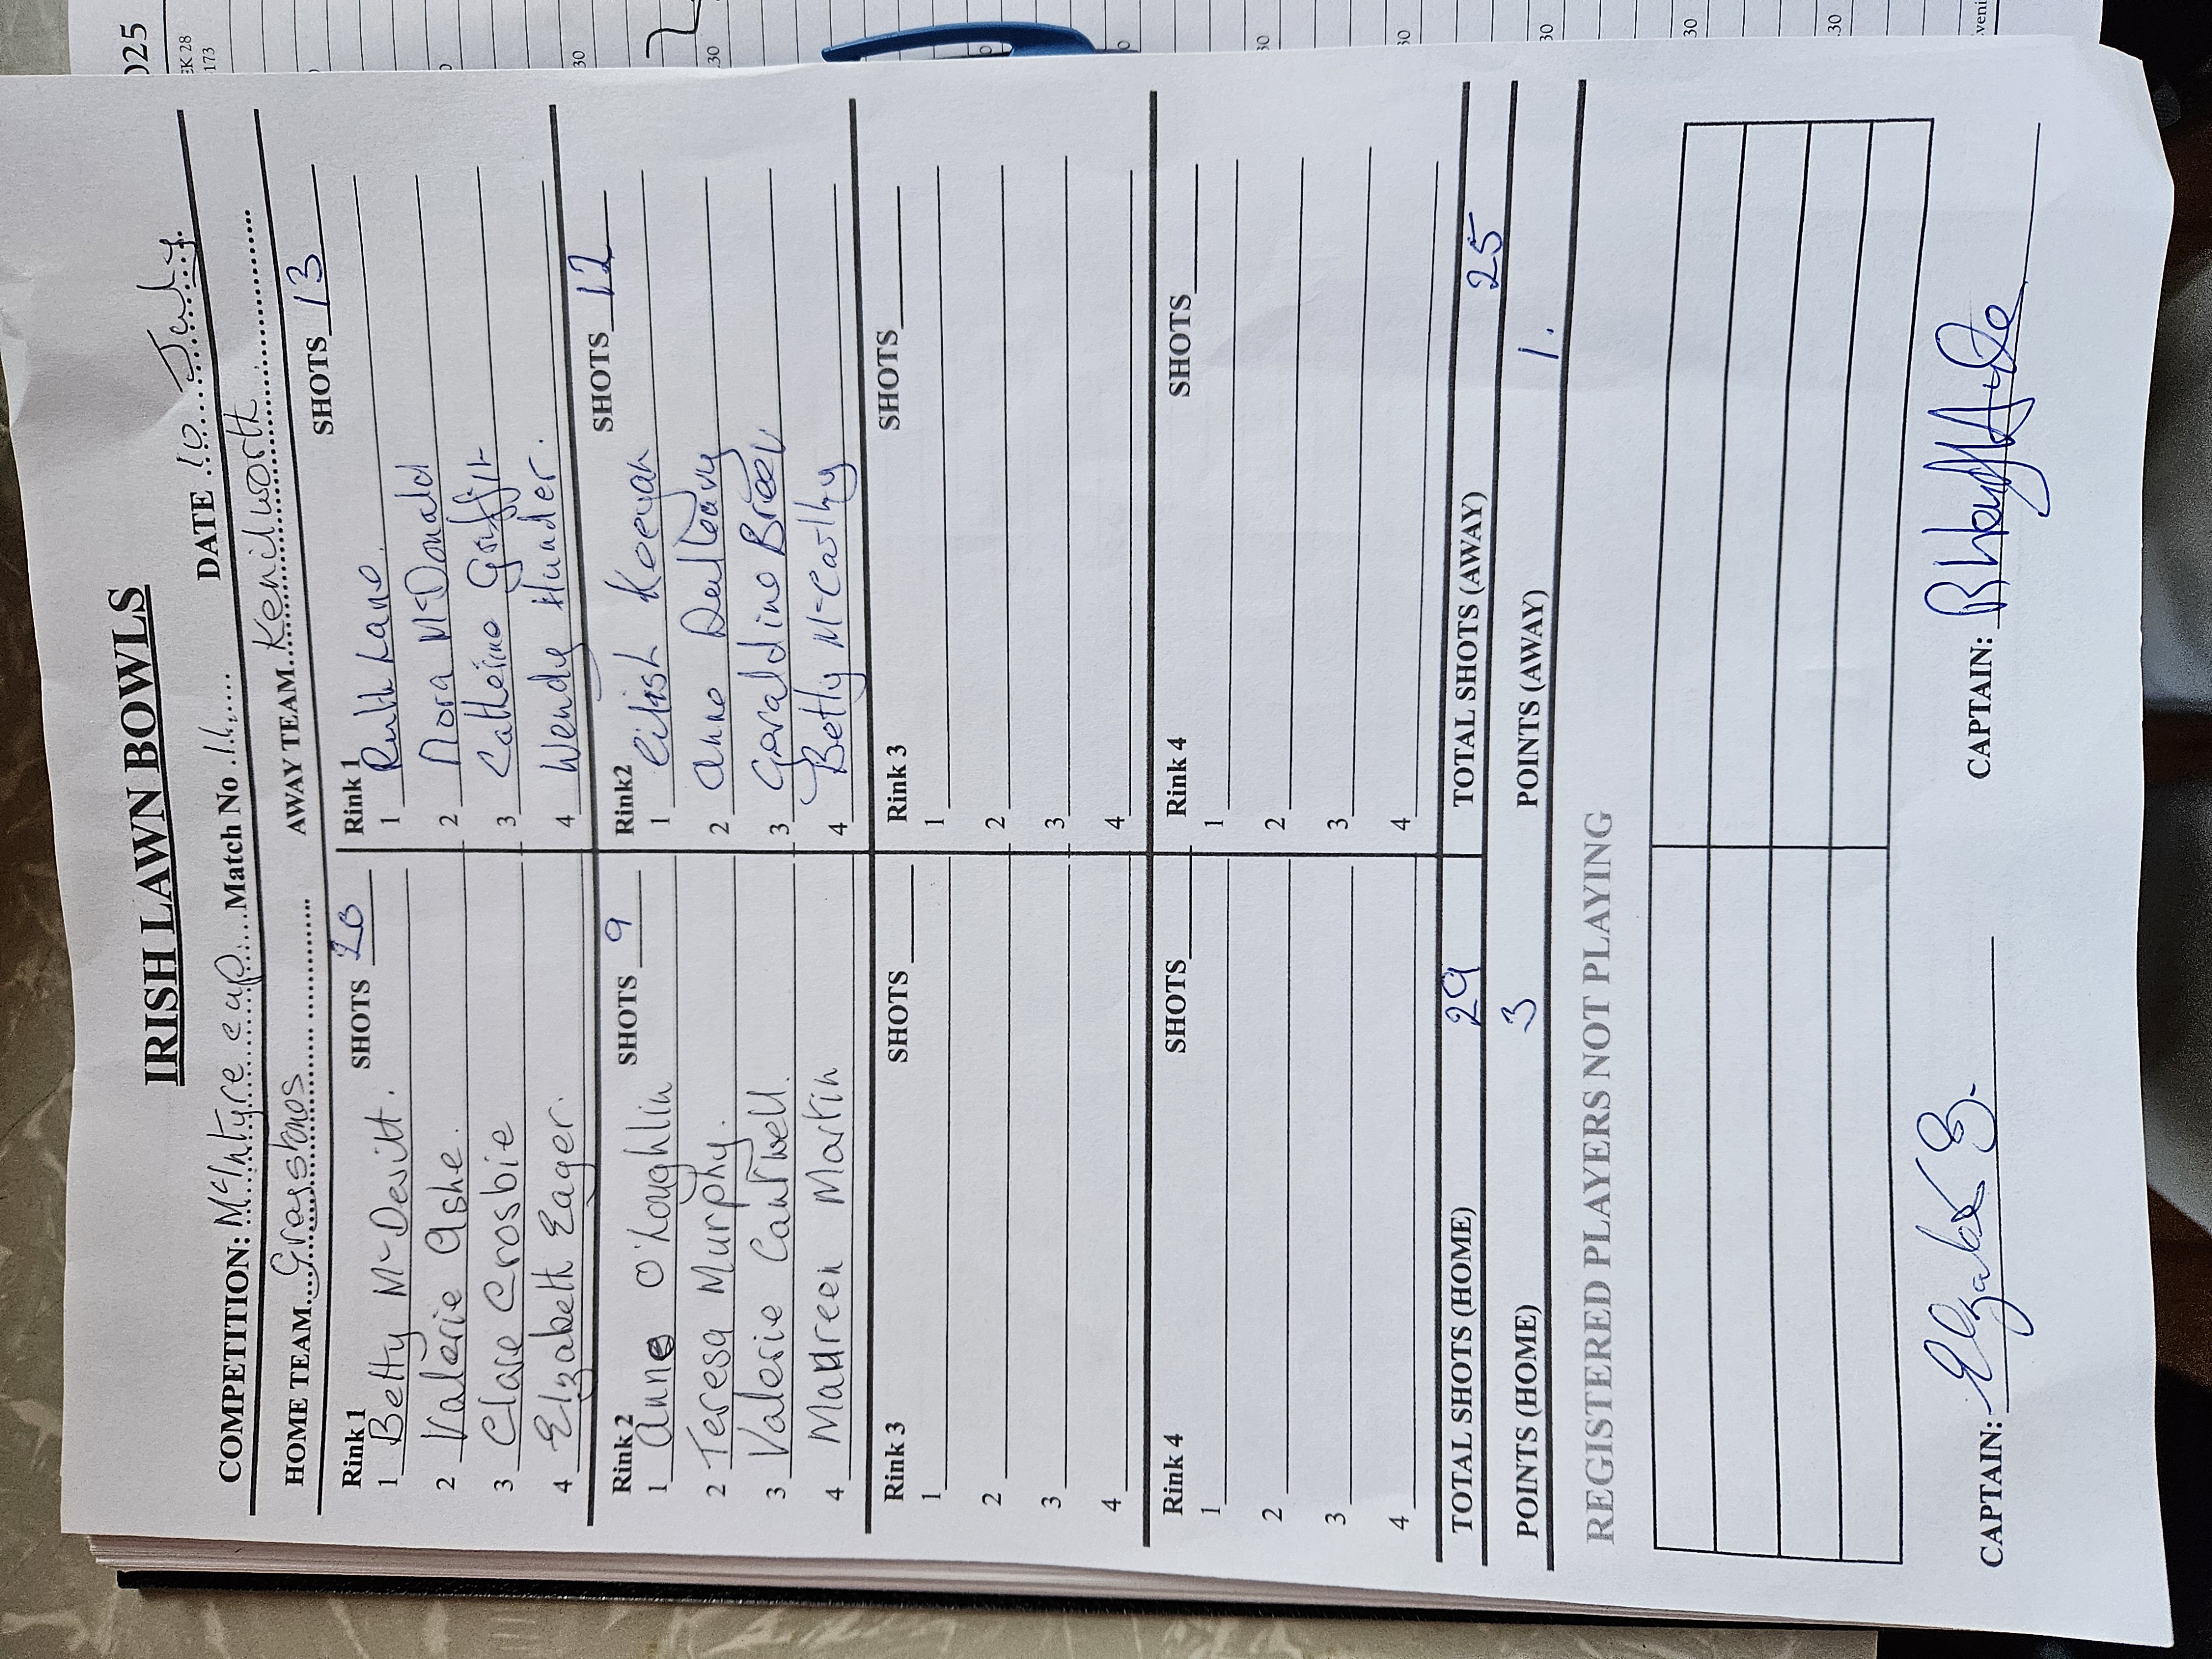 2025
EK 28
173
IRISH LAWN BOWLS
COMPETITION: McIntyre Cup Match No 11 DATE 10 July
HOME TEAM Greystones AWAY TEAM Kenilworth
SHOTS 20 SHOTS 13
Rink 1 Rink 1
1 Betty McDevitt. 1 Ruth Lane.
2 Valerie Ashe. 2 Nora McDonald
3 Clare Crosbie 3 Catherine Griffit
4 Elzabeth Eager. 4 Wendy Hunder.
SHOTS 9 SHOTS 12
Rink 2 Rink2
1 Anne O'Loughlin 1 Eilish Keeyan
2 Teresa Murphy. 2 Anne Dealleavy
3 Valerie Cantwell. 3 Geraldine Breen
4 Maureen Martin 4 Betty McCarthy
SHOTS SHOTS
Rink 3 Rink 3
1 1
2 2
3 3
4 4
SHOTS SHOTS
Rink 4 Rink 4
1 1
2 2
3 3
4 4
TOTAL SHOTS (HOME) 29 TOTAL SHOTS (AWAY) 25
POINTS (HOME) 3 POINTS (AWAY) 1.
REGISTERED PLAYERS NOT PLAYING
CAPTAIN: CAPTAIN: